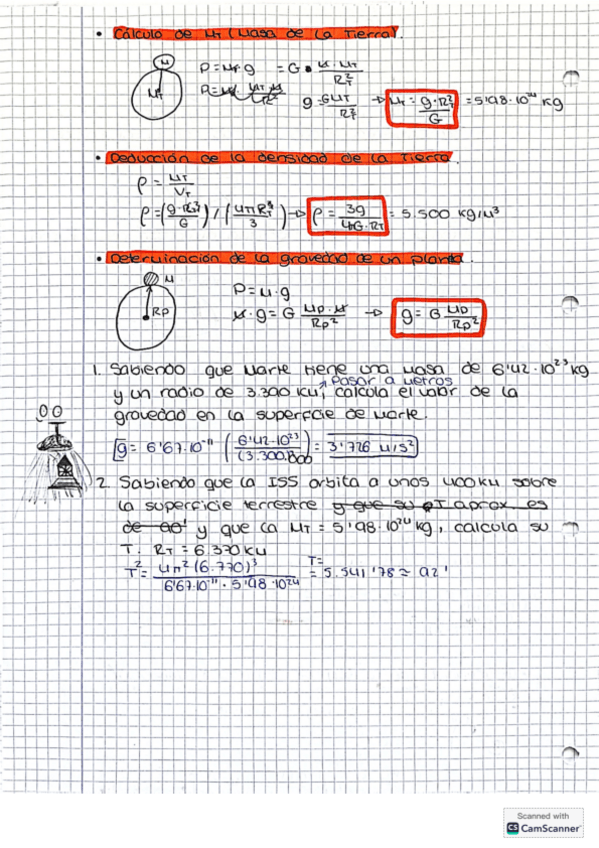 • Cálculo de MT (Masa de la Tierra).
M
MT
P = MT g = G • M · MT / RT²
g = G MT / RT² → MT = g · RT² / G = 5'98 · 10²⁴ kg
• Deducción de la densidad de la Tierra.
ρ = MT / VT
ρ = (g · RT² / G) / (4π RT³ / 3) → ρ = 3g / 4πG · RT = 5.500 kg/m³
• Determinación de la gravedad de un planeta.
M
Rp
P = M · g
M · g = G Mp · M / Rp² → g = G Mp / Rp²
1. Sabiendo que Marte tiene una masa de 6'42 · 10²³ kg
y un radio de 3.390 km, calcula el valor de la
↗ Pasar a metros
gravedad en la superficie de Marte.
g = 6'67 · 10⁻¹¹ (6'42 · 10²³ / (3.390.000) = 3'726 m/s²
2. Sabiendo que la ISS orbita a unos 400 km sobre
la superficie terrestre y que su T aprox es
de 90' y que la MT = 5'98 · 10²⁴ kg, calcula su
T. RT = 6.370 km
T² = 4π² (6.770)³ / 6'67 · 10⁻¹¹ · 5'98 · 10²⁴ T = = 5.541'78 ≈ 92'
Scanned with
CS CamScanner